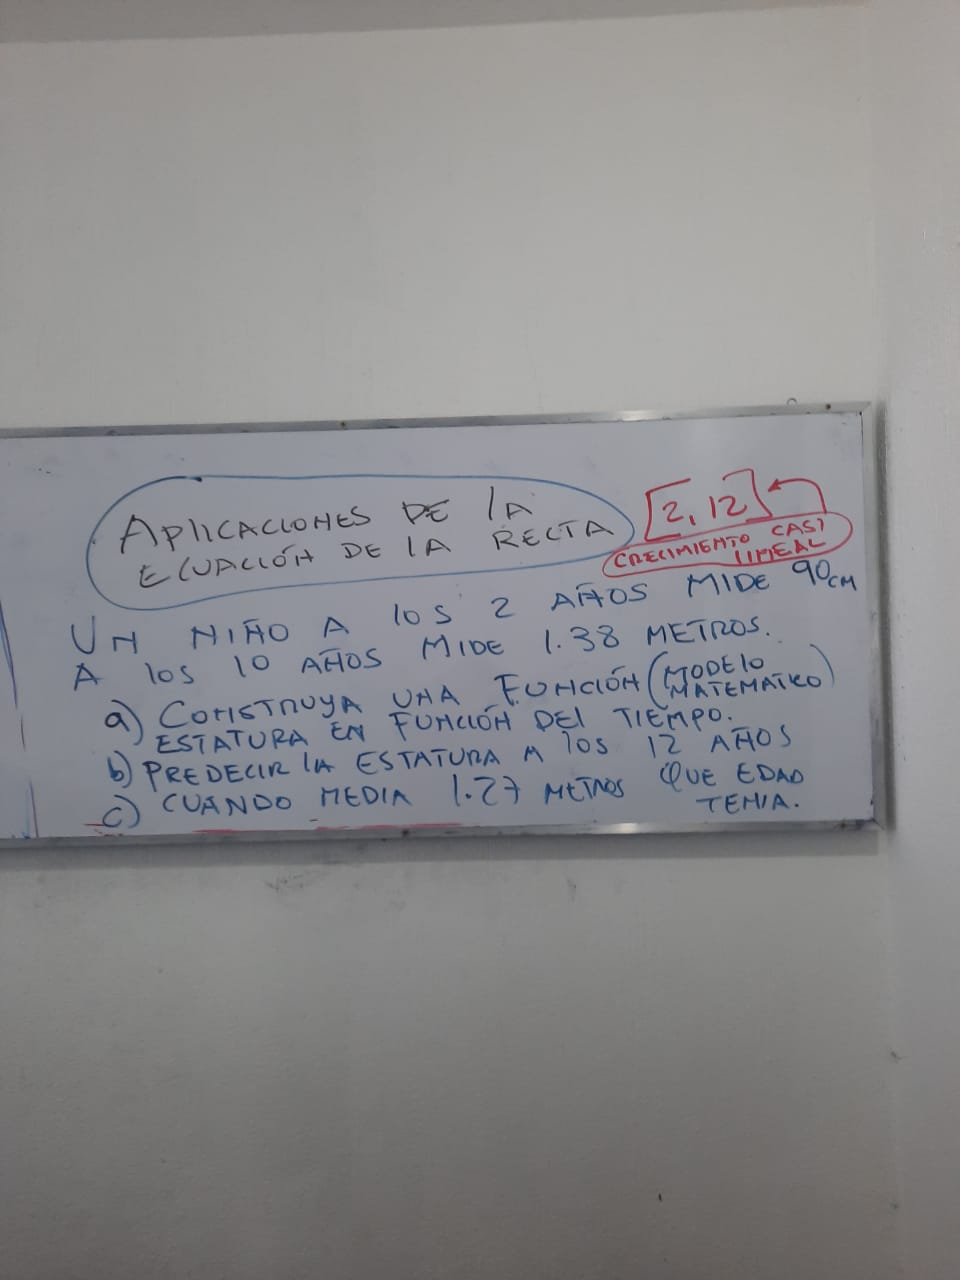 APLICACIONES DE LA
ECUACIÓN DE LA RECTA
[2, 12]
CRECIMIENTO CASI
LINEAL
UN NIÑO A LOS 2 AÑOS MIDE 90CM
A LOS 10 AÑOS MIDE 1.38 METROS.
a) CONSTRUYA UNA FUNCIÓN (MODELO
MATEMATICO)
ESTATURA EN FUNCIÓN DEL TIEMPO.
b) PREDECIR LA ESTATURA A LOS 12 AÑOS
c) CUANDO MEDIA 1.27 METROS QUE EDAD
TENIA.